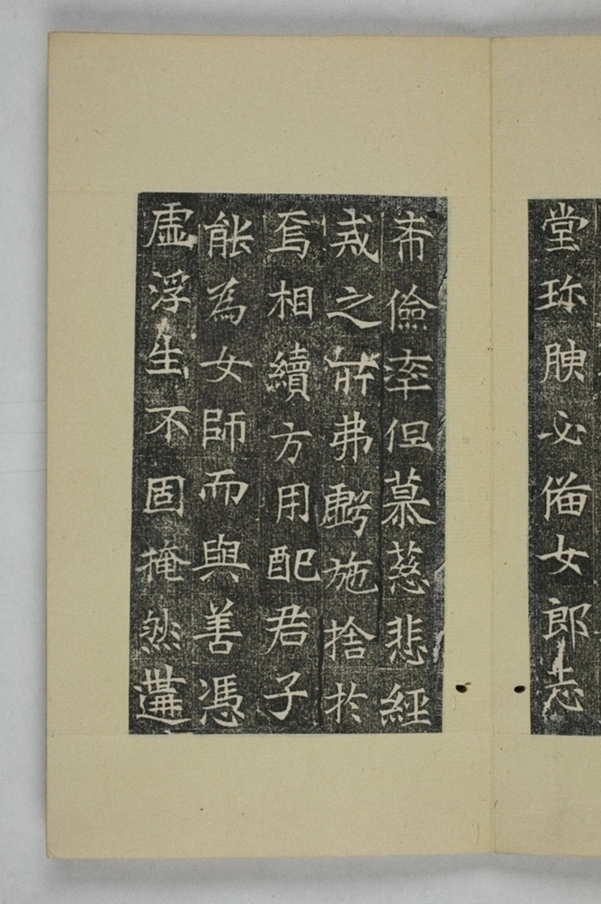 堂珎腴必俻女郎志
希儉率但慕慈悲經
戒之所弗虧施捨於
焉相續方用配君子
能為女師而與善馮
虛浮生不固掩然遘